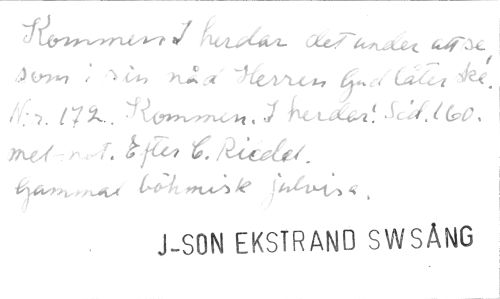 Kommen I herdar det under att se
som i sin nåd Herren Gud låter ske.
N:r. 172. Kommen. I herdar! Sid. 160.
mel-not. Efter C. Riedel.
Gammal böhmisk julvisa.
J-SON EKSTRAND SWSÅNG